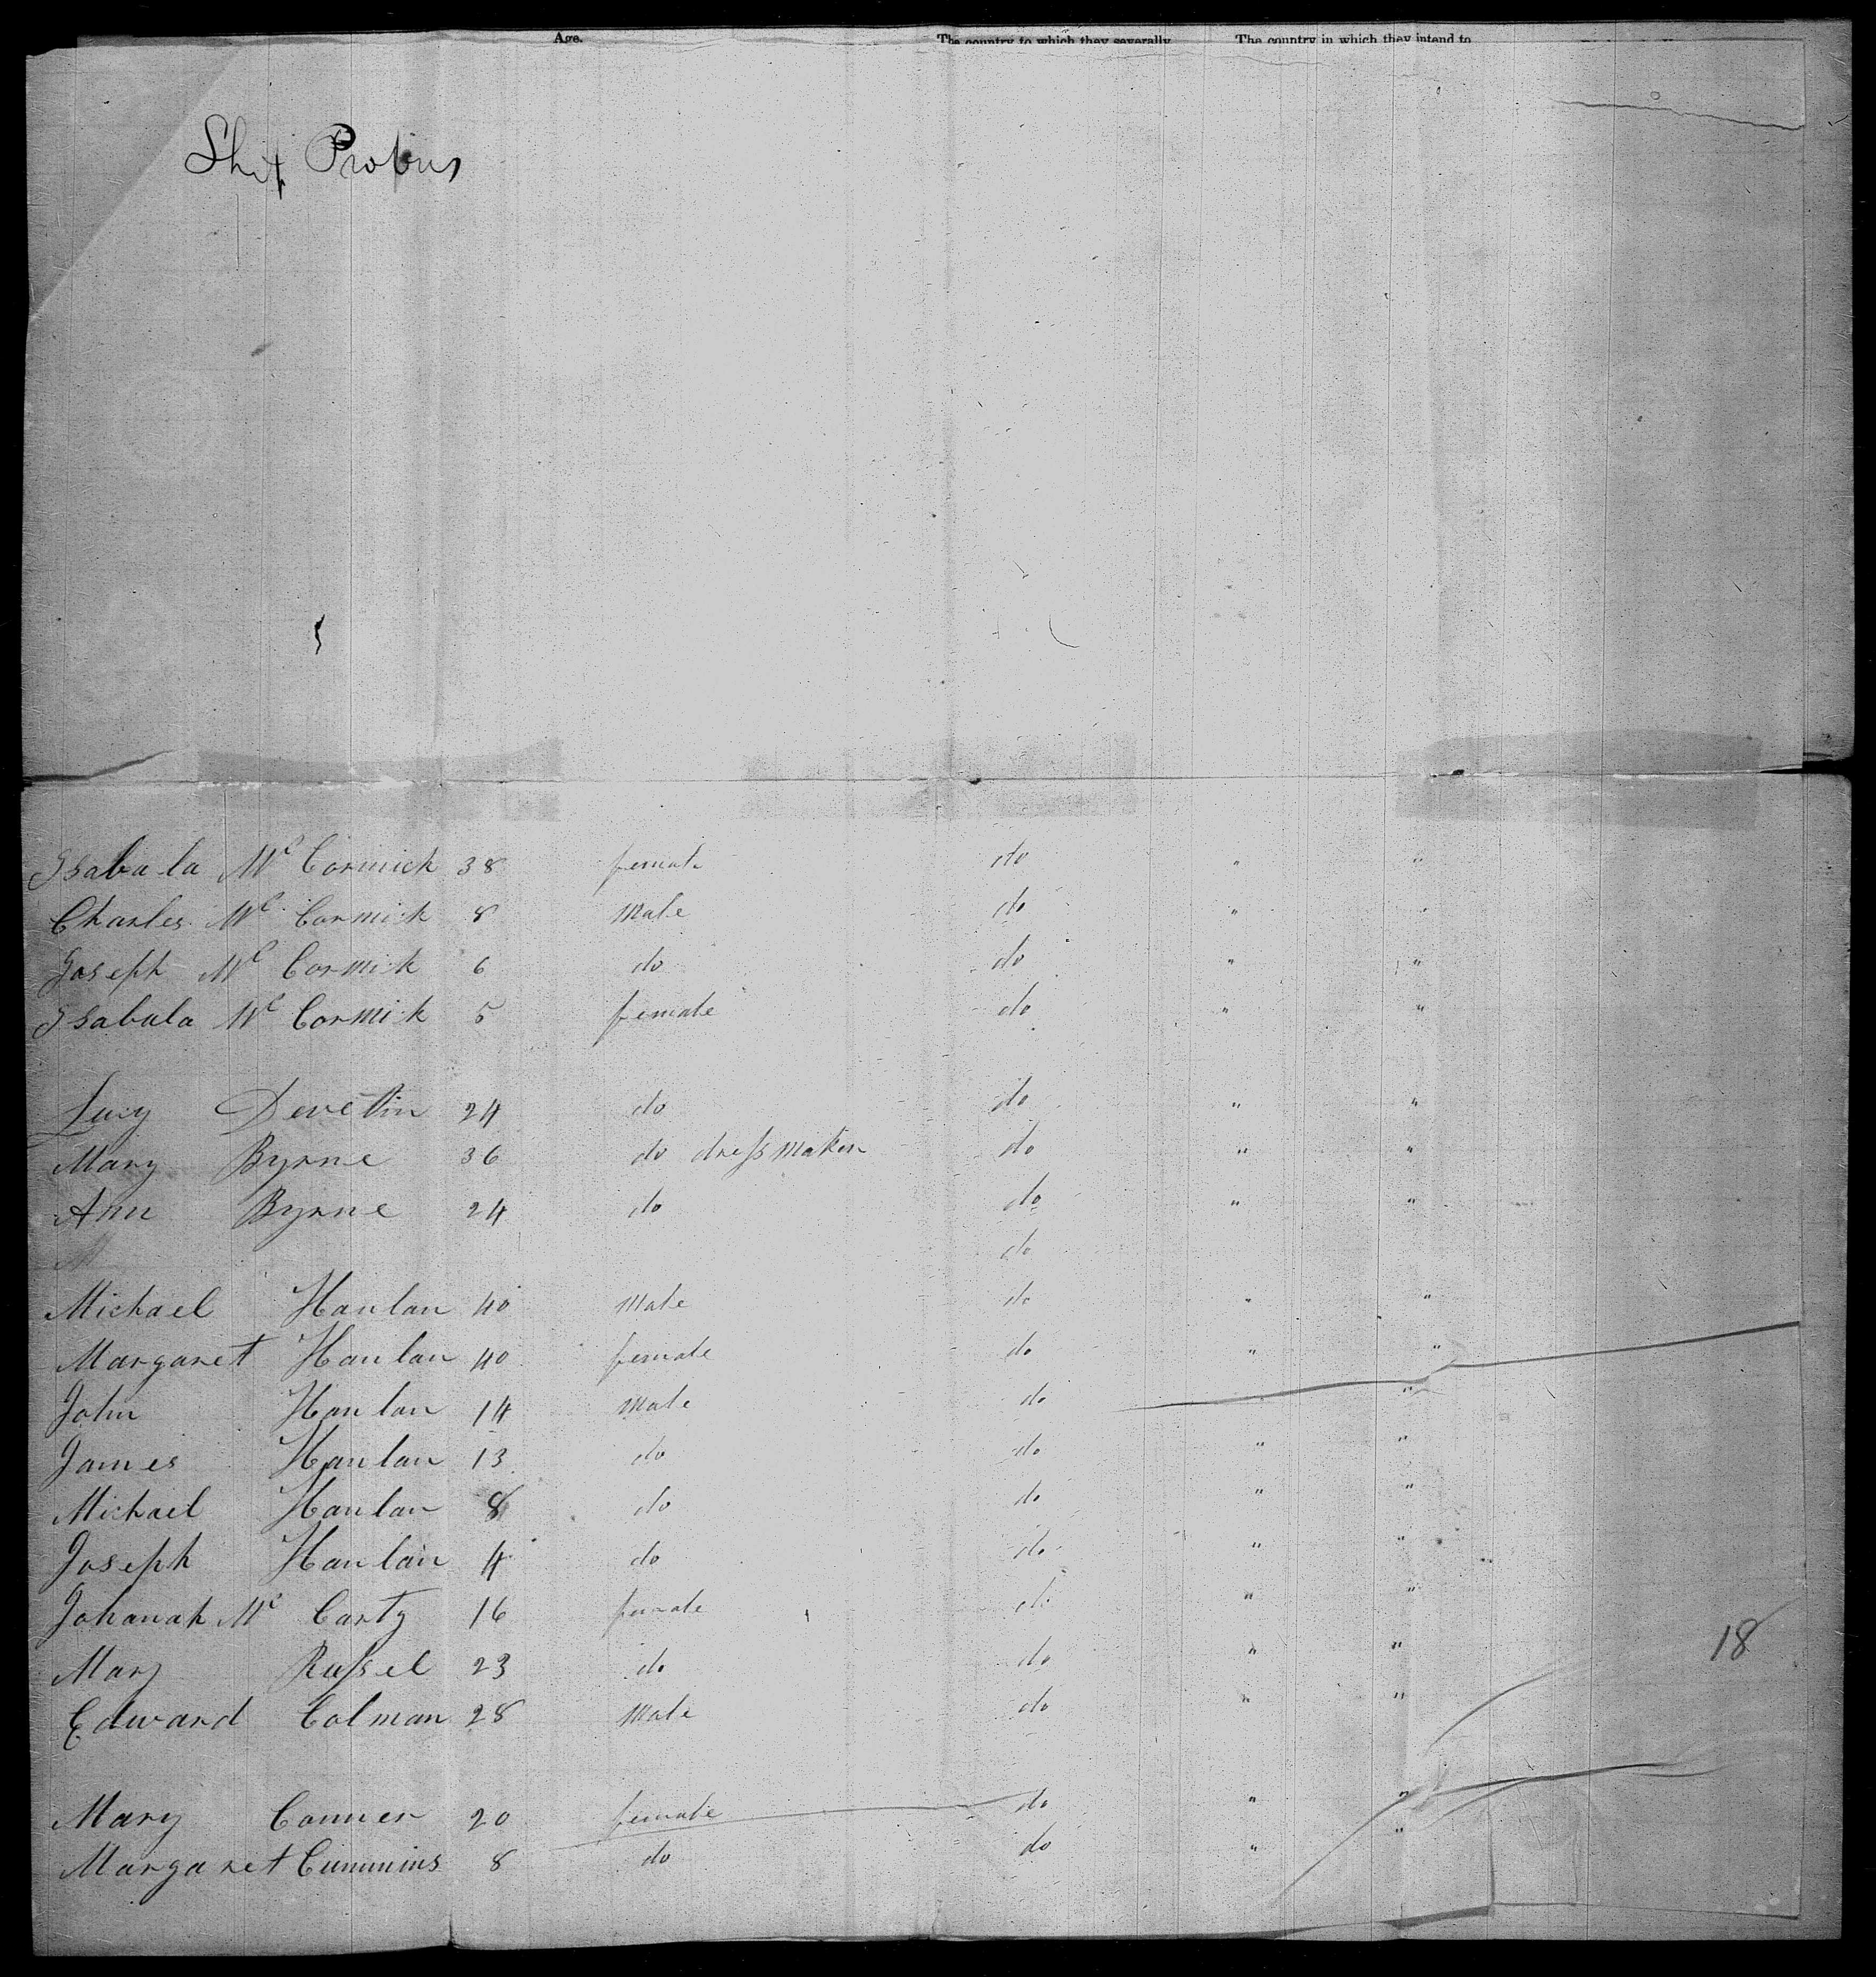 Age. The country to which they severally The country in which they intend to
Ship Probus
Isabala Mc Cormick 38 female do " "
Charles Mc Cormick 8 Male do " "
Joseph Mc Cormick 6 do do " "
Isabala Mc Cormick 5 female do " "
Lucy Devetin 24 do do " "
Mary Byrne 36 do dressmaker do " "
Ann Byrne 24 do do " "
do
Michael Hanlan 40 Male do " "
Margaret Hanlan 40 female do " "
John Hanlan 14 Male do " "
James Hanlan 13 do do " "
Michael Hanlan 8 do do " "
Joseph Hanlan 4 do do " "
Johanah Mc Carty 16 female do " "
Mary Russel 23 do do " "
18
Edward Colman 28 Male do " "
Mary Conner 20 female do " "
Margaret Cummins 8 do do " "